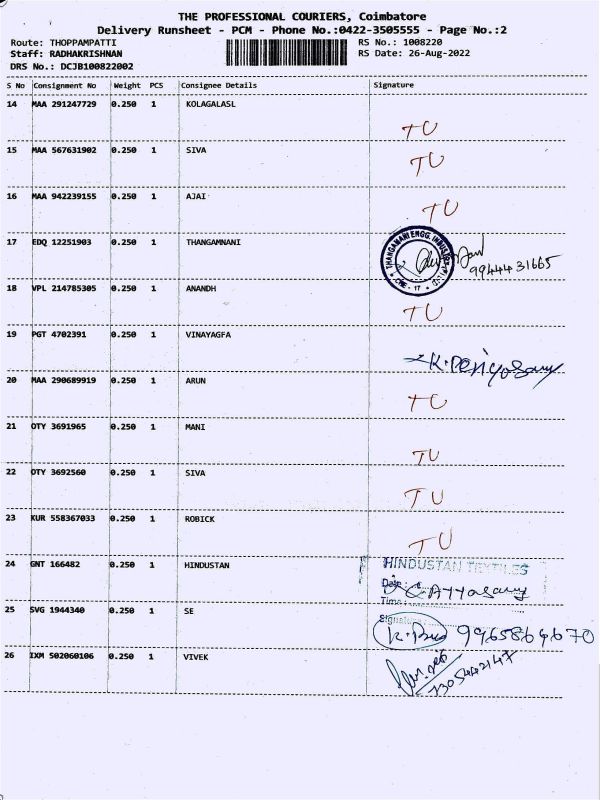 THE PROFESSIONAL COURIERS, Coimbatore
Delivery Runsheet - PCM - Phone No.:0422-3505555 - Page No.:2
Route: THOPPAMPATTI RS No.: 1008220
Staff: RADHAKRISHNAN RS Date: 26-Aug-2022
DRS No.: DCJB100822002
S No Consignment No Weight PCS Consignee Details Signature
14 MAA 291247729 0.250 1 KOLAGALASL
TU
15 MAA 567631902 0.250 1 SIVA
TU
16 MAA 942239155 0.250 1 AJAI
TU
17 EDQ 12251903 0.250 1 THANGAMNANI
THANGAMANI ENGG. INDUSTRY
CBE - 17
9944431665
18 VPL 214785305 0.250 1 ANANDH
TU
19 PGT 4702391 0.250 1 VINAYAGFA
K. Periyasamy
20 MAA 290689919 0.250 1 ARUN
TU
21 OTY 3691965 0.250 1 MANI
TU
22 OTY 3692560 0.250 1 SIVA
TU
23 KUR 558367033 0.250 1 ROBICK
TU
24 GNT 166482 0.250 1 HINDUSTAN
HINDUSTAN TEXTILES
Date
Time
25 SVG 1944340 0.250 1 SE
Signature
9965864670
26 IXM 502060106 0.250 1 VIVEK